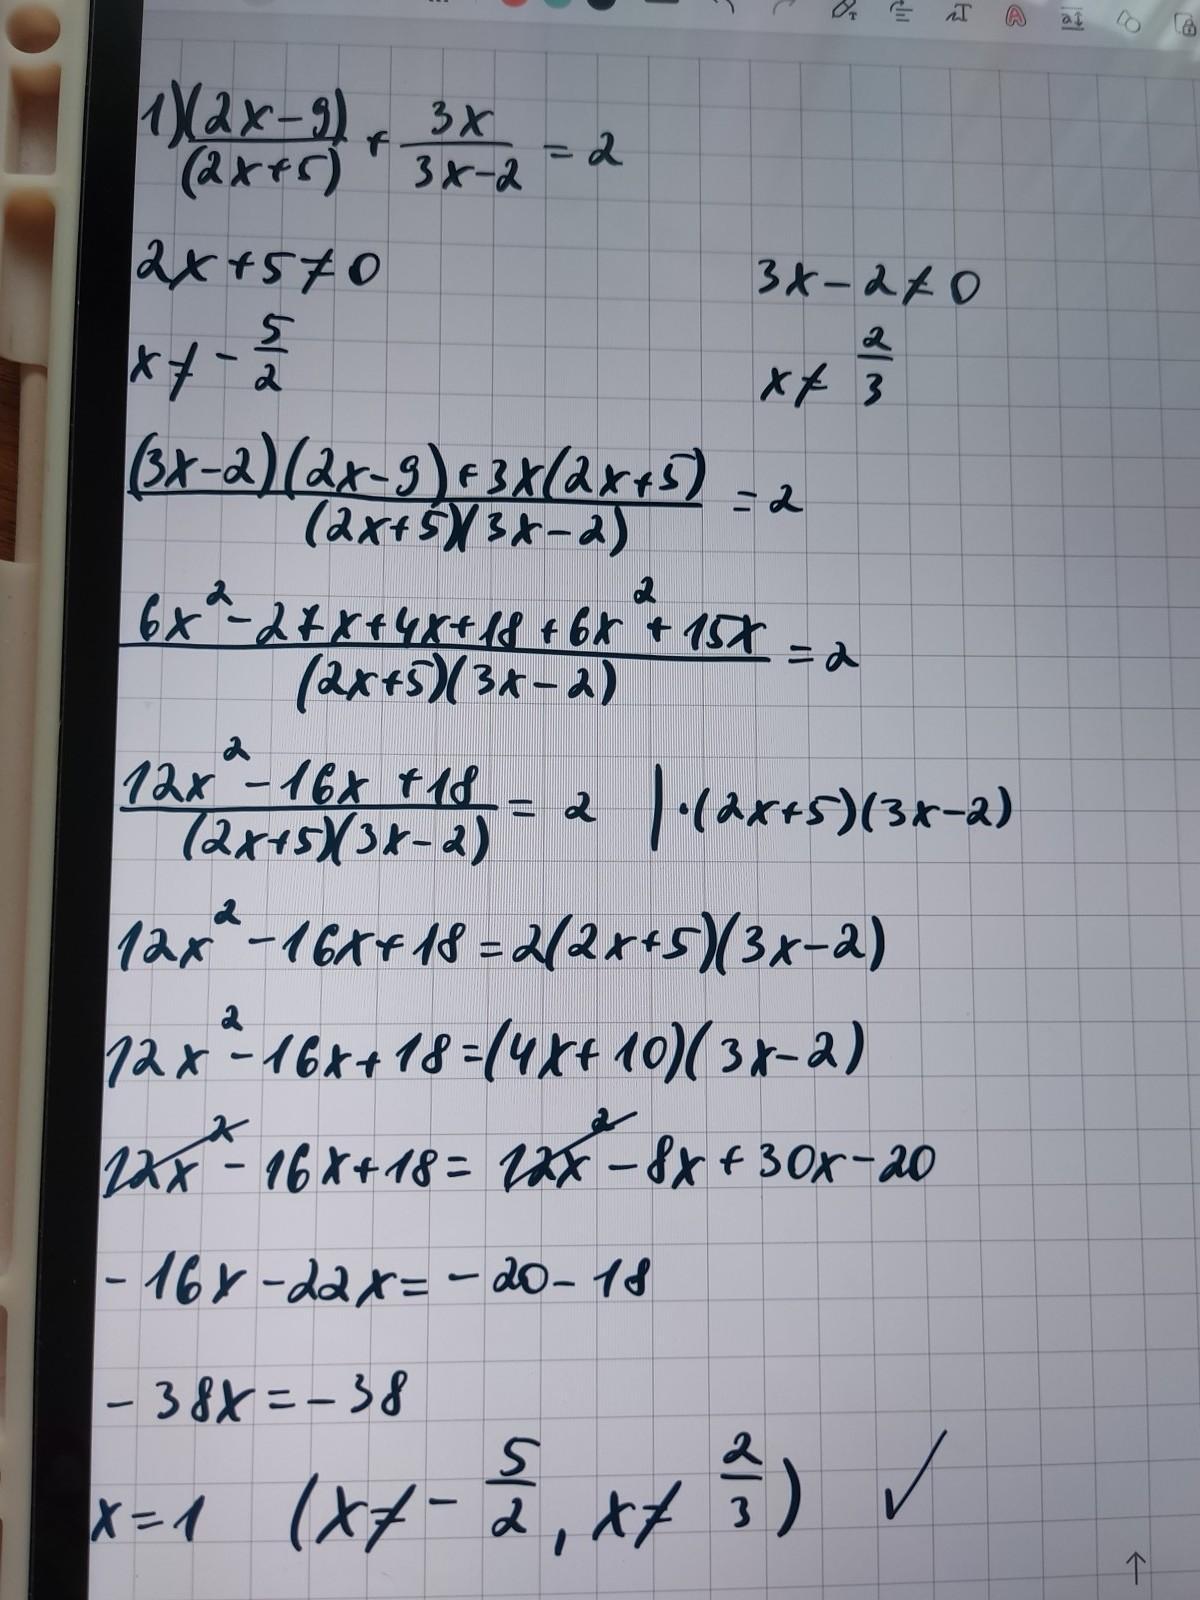 1) (2x-9)/(2x+5) + 3x/(3x-2) = 2
2x+5≠0 3x-2≠0
x≠ -5/2 x≠ 2/3
((3x-2)(2x-9)+3x(2x+5))/((2x+5)(3x-2)) = 2
(6x²-27x+4x+18+6x²+15x)/((2x+5)(3x-2)) = 2
(12x²-16x+18)/((2x+5)(3x-2)) = 2 |·(2x+5)(3x-2)
12x²-16x+18=2(2x+5)(3x-2)
12x²-16x+18=(4x+10)(3x-2)
12x²-16x+18=12x²-8x+30x-20
-16x-22x=-20-18
-38x=-38
x=1 (x≠-5/2, x≠2/3) ✓